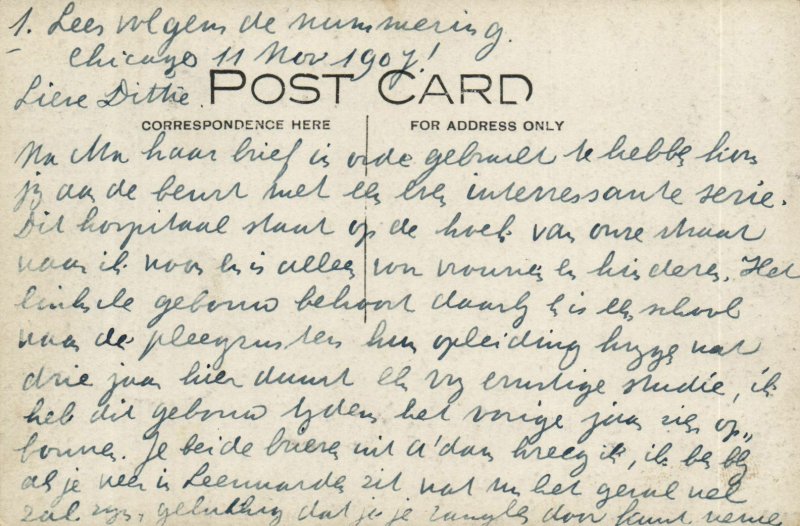 1. Lees volgens de nummering.
Chicago 11 Nov 1907!
Lieve Dithe.
POST CARD
CORRESPONDENCE HERE
FOR ADDRESS ONLY
Na Ma haar brief in orde gebracht te hebben kom
jy aan de beurt met een even interressante serie.
Dit hospitaal staat op de hoek van onze straat
waar ik woon en is alleen voor vrouwen en kinderen. Het
linksche gebouw behoort daarby en is een school
waar de pleegzusters hun opleiding krygen wat
drie jaar hier duurt en vry ernstige studie, ik
heb dit gebouw tydens het vorige jaar zien op„
bouwen. Je beide brieven uit A'dam kreeg ik, ik ben bly
als je weer in Leeuwarden zit wat nu het geval wel
zal zyn, gelukkig dat je je door